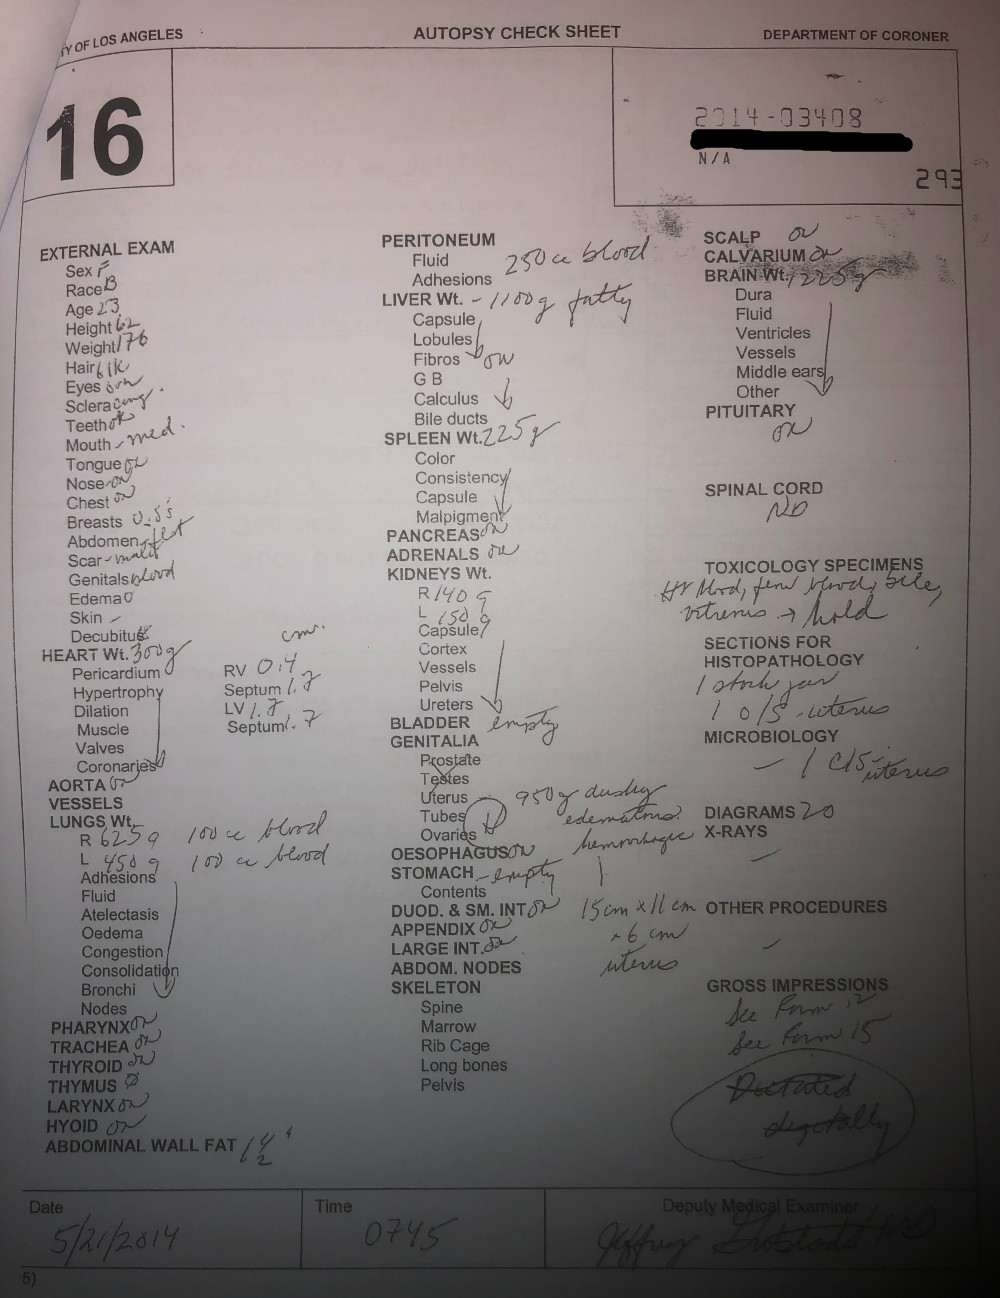 TY OF LOS ANGELES
AUTOPSY CHECK SHEET
DEPARTMENT OF CORONER
16
2014-03408
N/A
293
EXTERNAL EXAM
Sex F
Race B
Age 23
Height 62
Weight 176
Hair blk
Eyes brn
Sclera cong.
Teeth ok
Mouth - med.
Tongue
Nose
Chest
Breasts
Abdomen
Scar
Genitals blood
Edema 0
Skin -
Decubitus
HEART Wt. 300g
cm.
Pericardium
RV 0.4
Hypertrophy
Septum 1.7
Dilation
LV 1.7
Muscle
Septum 1.7
Valves
Coronaries
AORTA
VESSELS
LUNGS Wt.
R 625 g 100 cc blood
L 450 g 100 cc blood
Adhesions
Fluid
Atelectasis
Oedema
Congestion
Consolidation
Bronchi
Nodes
PHARYNX
TRACHEA
THYROID
THYMUS
LARYNX
HYOID
ABDOMINAL WALL FAT 1 1/2"
PERITONEUM
Fluid 250 cc blood
Adhesions
LIVER Wt. - 1100g fatty
Capsule
Lobules
Fibros
G B
Calculus
Bile ducts
SPLEEN Wt. 225g
Color
Consistency
Capsule
Malpigment
PANCREAS
ADRENALS
KIDNEYS Wt.
R 140 g
L 150 g
Capsule
Cortex
Vessels
Pelvis
Ureters
BLADDER empty
GENITALIA
Prostate
Testes
Uterus - 950g dusky
Tubes edematous
Ovaries hemorrhagic
OESOPHAGUS
STOMACH - empty
Contents
DUOD. & SM. INT 15cm x 11 cm
APPENDIX x 6 cm
LARGE INT. uterus
ABDOM. NODES
SKELETON
Spine
Marrow
Rib Cage
Long bones
Pelvis
SCALP
CALVARIUM
BRAIN Wt. 1225g
Dura
Fluid
Ventricles
Vessels
Middle ears
Other
PITUITARY
SPINAL CORD
ND
TOXICOLOGY SPECIMENS
Ht blood, fem blood, bile,
vitreous → hold
SECTIONS FOR
HISTOPATHOLOGY
1 stock jar
1 o/s - uterus
MICROBIOLOGY
- 1 C/S - uterus
DIAGRAMS 20
X-RAYS
-
OTHER PROCEDURES
-
GROSS IMPRESSIONS
See Form 12
See Form 15
Dictated
digitally
Date
Time
Deputy Medical Examiner
5/21/2014
0745
Jeffrey
5)